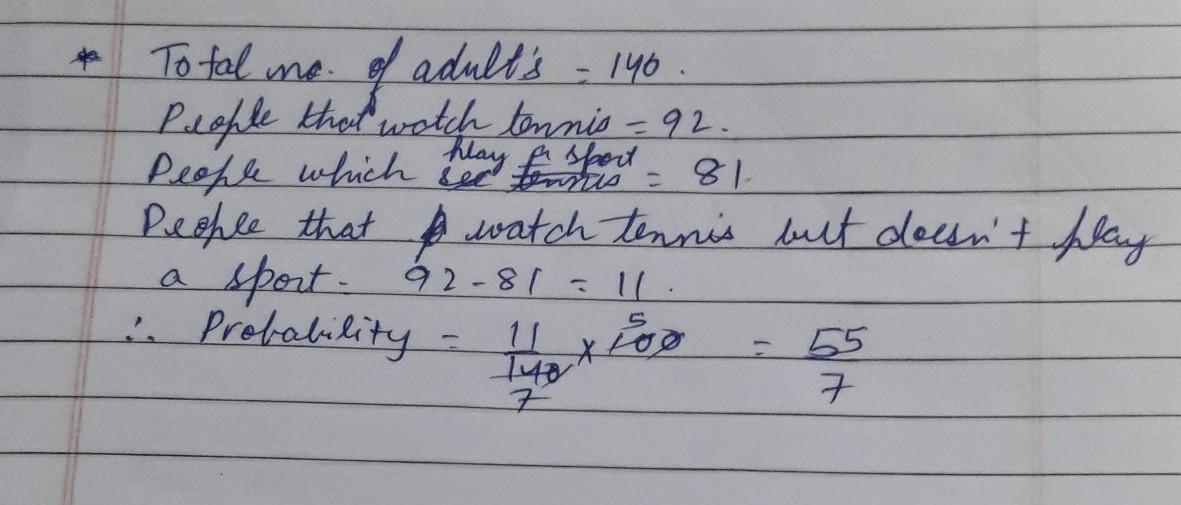 * Total no. of adult's = 140.
People that watch tennis = 92.
play a sport
People which see tennis = 81.
People that watch tennis but doesn't play
a sport - 92 - 81 = 11.
∴ Probability = 11/140 × 100 = 55/7
5
7